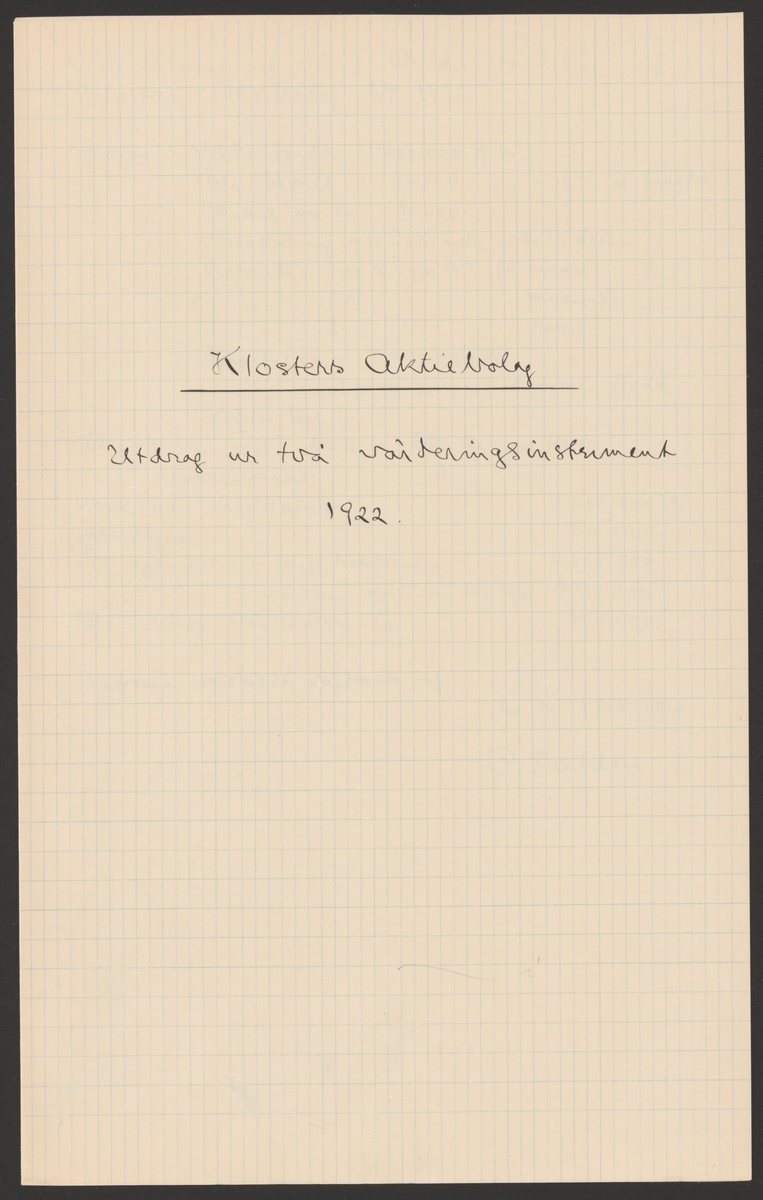 Klosters Aktiebolag
Utdrag ur två värderingsinstrument
1922.